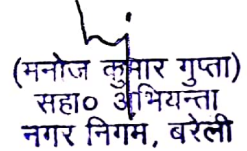 (मनोज कुमार गुप्ता)
सहा० अभियन्ता
नगर निगम, बरेली